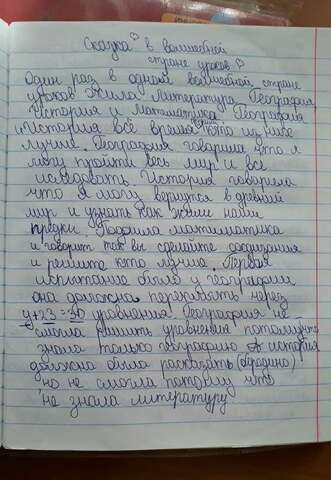 Сказка в волшебной
стране уроков
Один раз в одной волшебной стране
уроков жила Литература География
История и Математика География
и История всё время кто из них
лучше. География говорила что я
могу пройти весь мир и всё
исследовать. История говорила
что я могу вернутся в древний
мир и узнать как жили наши
предки. математика
и говорит так вы сделайте
и решите кто лучше. Первая
испытание было у географии
она должна через
у+23=30 уравнения География не
смогла решить уравнения потому что
знала только географию А история
должна была расказать (Бородино)
но не смогла потому что
не знала литературу